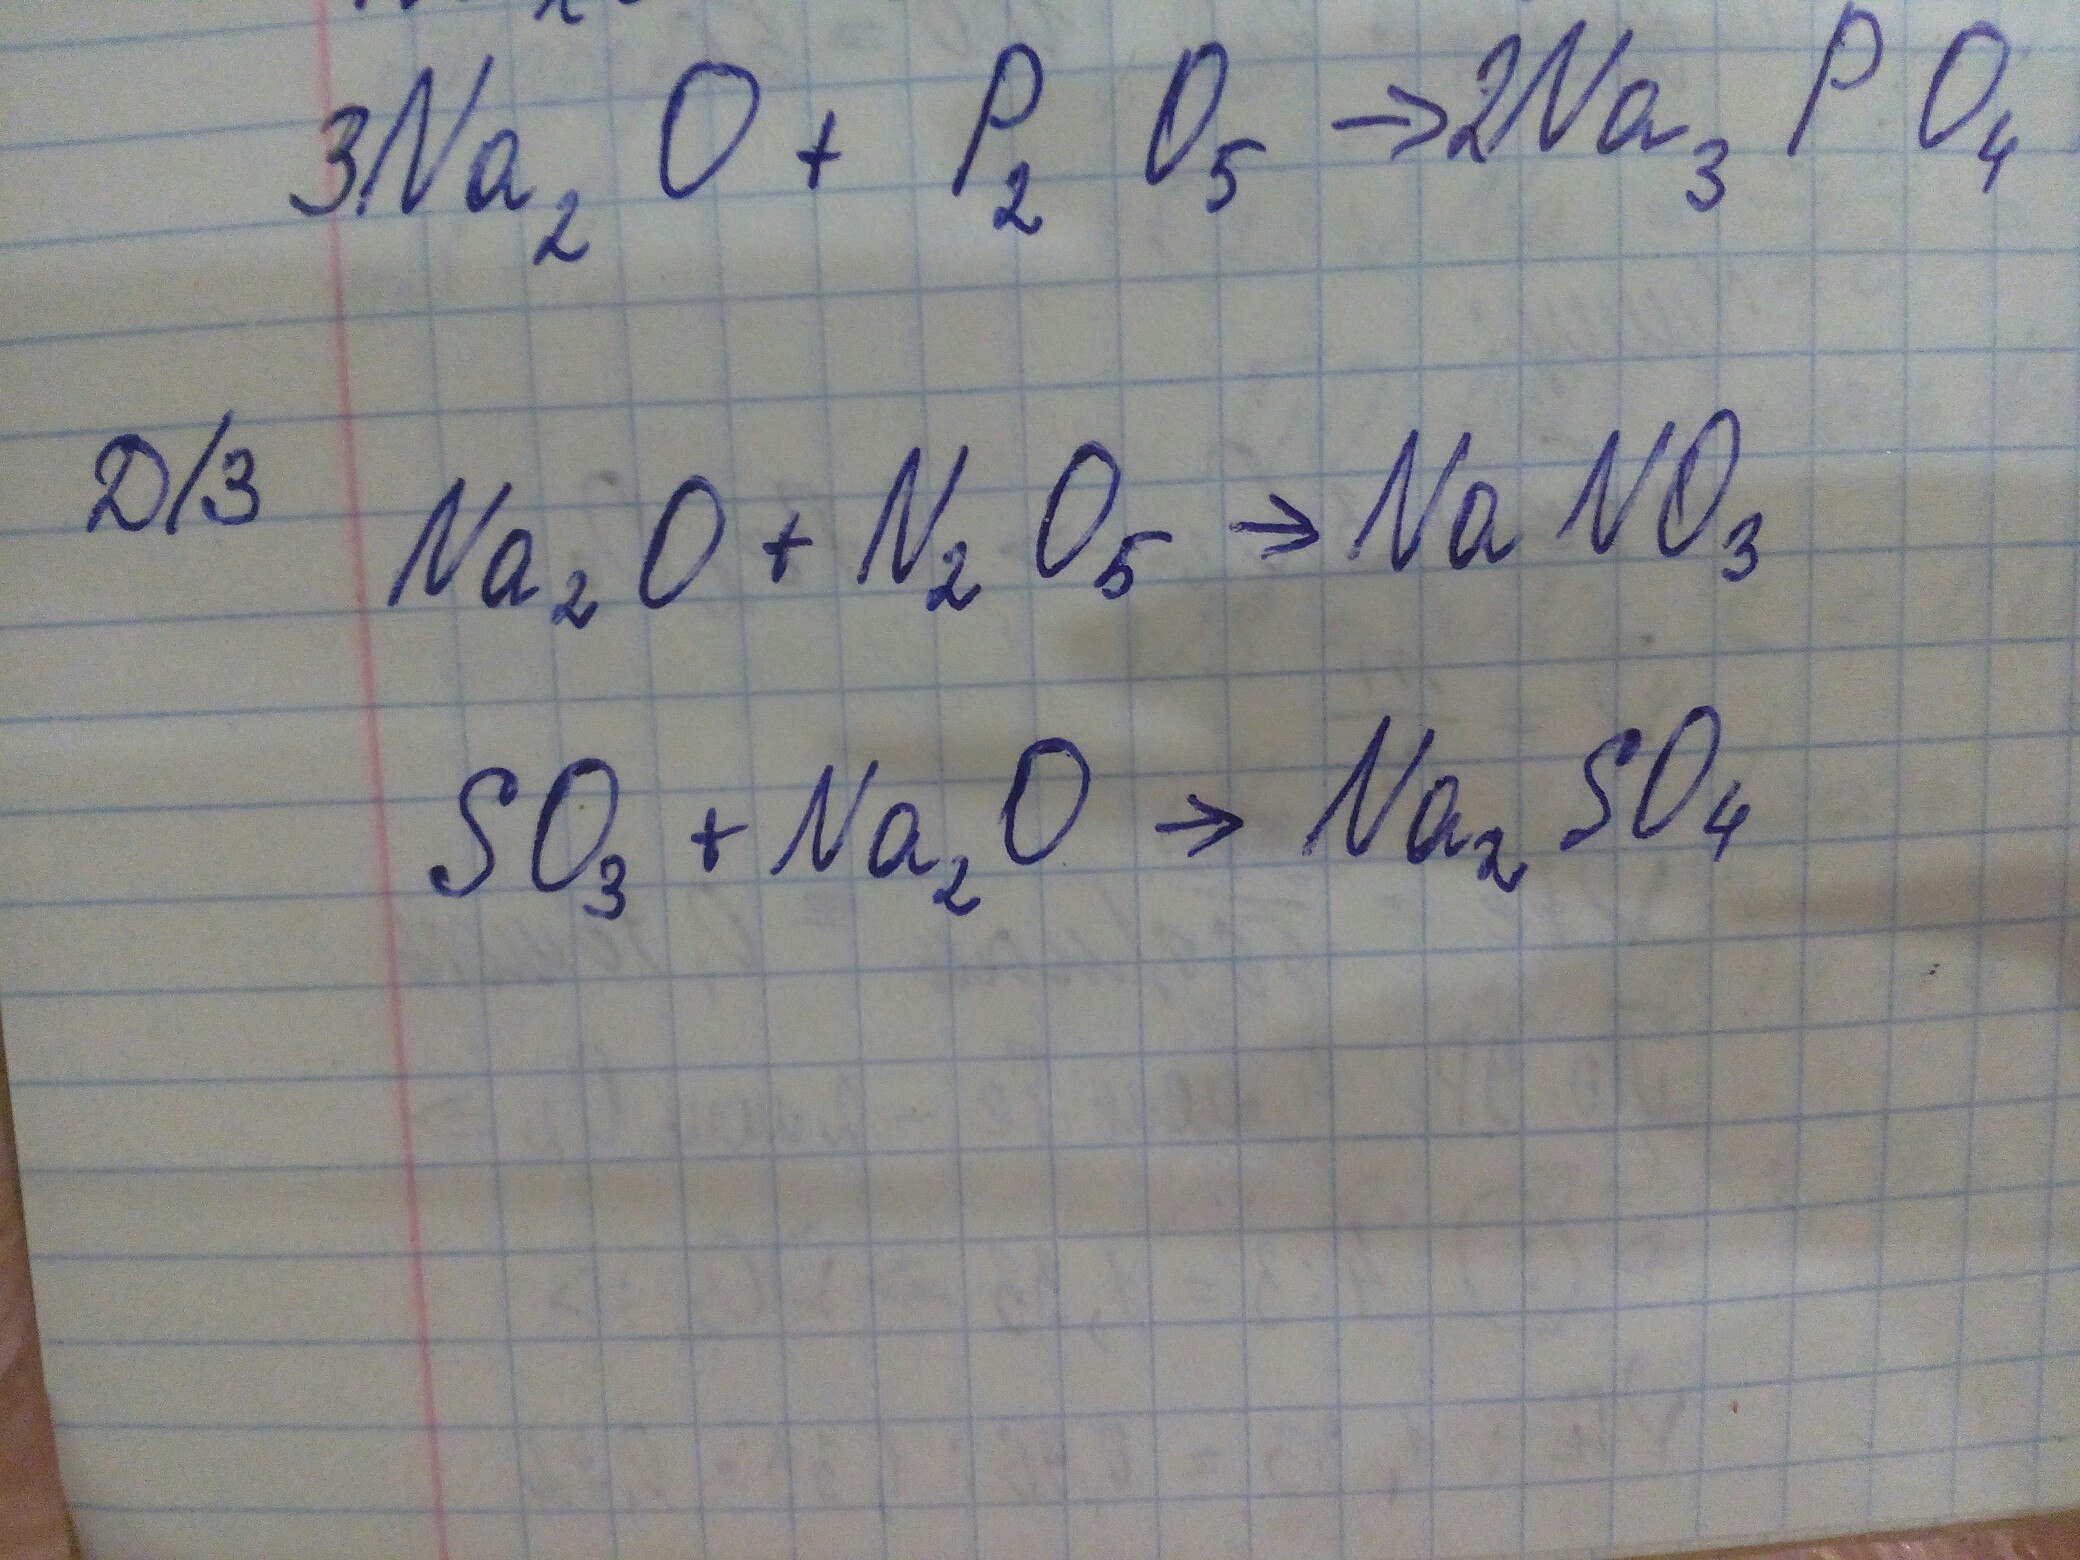 3Na₂O + P₂O₅ → 2Na₃PO₄
Д/З Na₂O + N₂O₅ → NaNO₃
SO₃ + Na₂O → Na₂SO₄